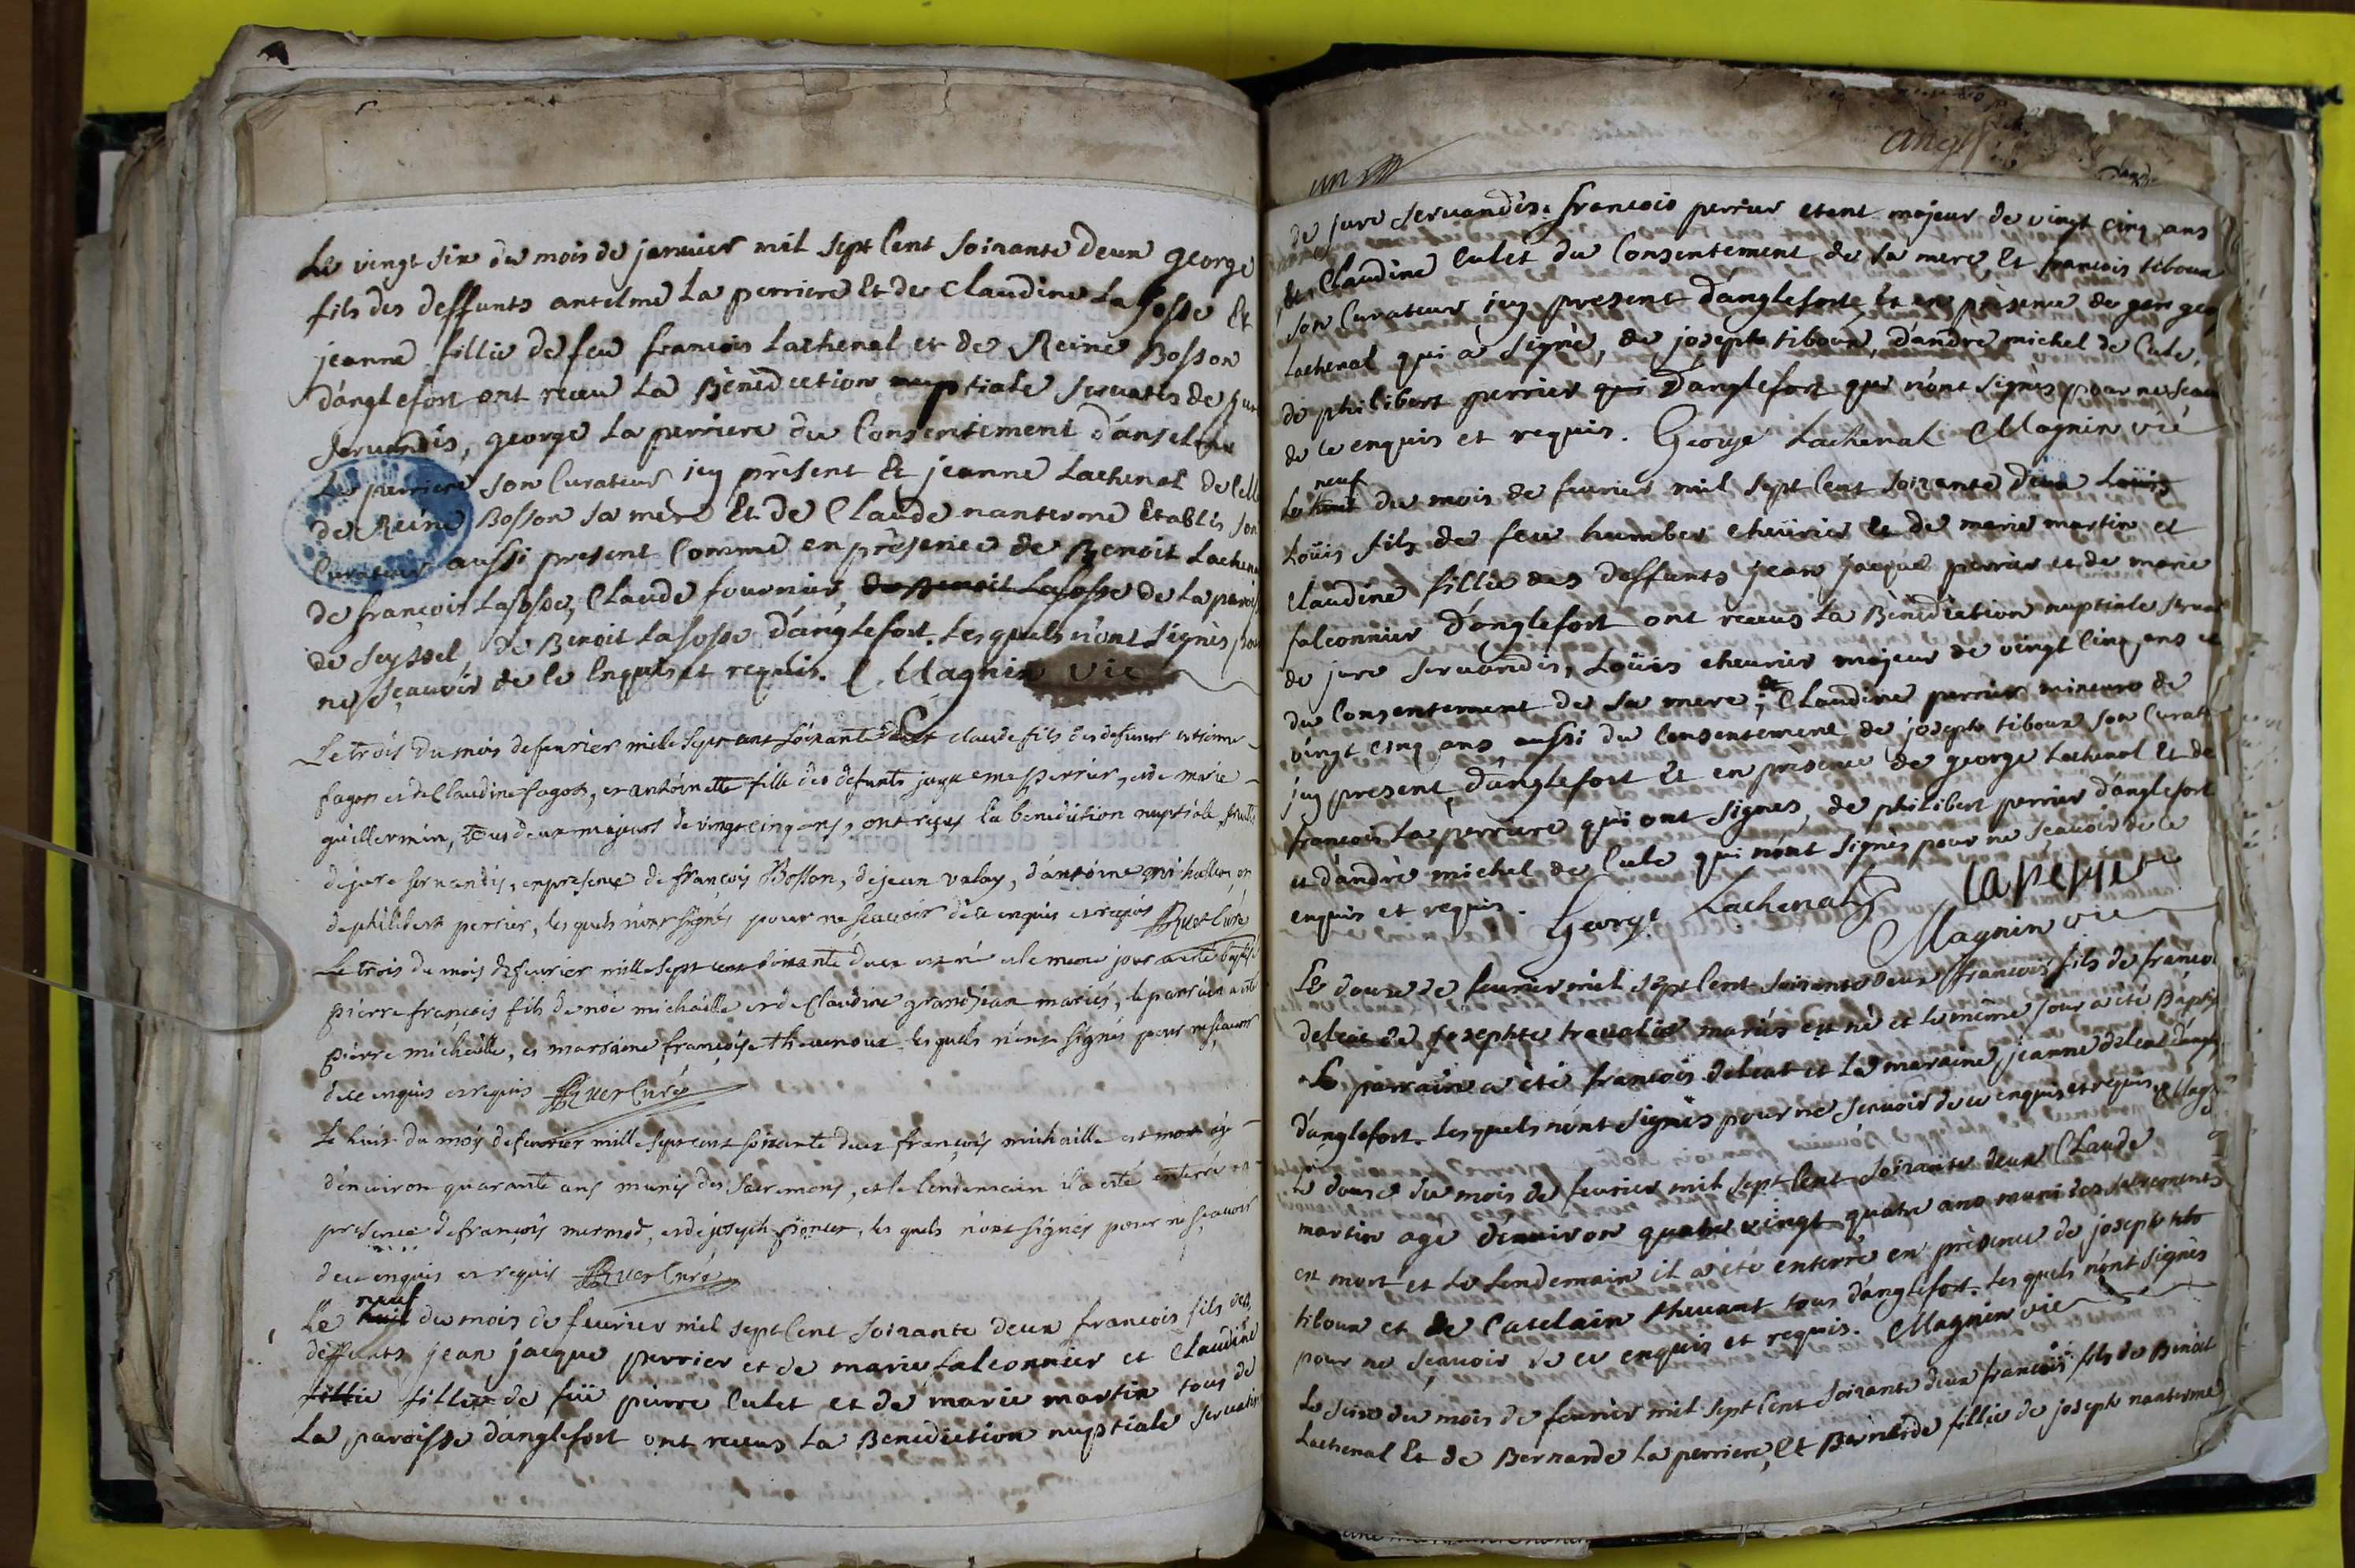 Le vingt six du mois de janvier mil sept Cent soixante deux george
fils des deffunts antelme La perriere Et de Claudine La fosse Et
jeanne fillie de feu francois Lachenal et de Reine Bosson
d'anglefort ont receu La Bénédiction nuptiale servatis de jure
servandis, george La perriere du Consentement d'anselme
La perriere son Curateur icy présent Et jeanne Lachenal de Cell
de Reine Bosson sa mère Et de Claude nanterme Etablis son
Curateur aussi present Comme en présence de Benoit Lachena
de françois Lafosse, Claude fournier, de Benoit Lafosse de La parois
de seyssel de Benoit Lafosse d'anglefort. Les quels n'ont signès pou
ne sçauvoir de ce Enquis et requis. Magnin vic
Le trois du mois de feurier mile sept cent soixante deux claude fils des defunts
fagot et de Claudine fagot, et antoinette fille des defunts jaqueme perrier, et de marie
guillermin, tous deux majeurs de vingt cinq ans, ont reçus la benediction nuptiale
de jure servandis, en presence de françois Bosson, de jean valay, d'antoine michaille, et
de philibert perrier, les quels n'ont signés pour ne scauoir de ce enquis et requis Ruet Curé
Le trois du mois de feurier mille sept cent soixante deux est né et le meme jour a eté baptisé
pierre françois fils de noé michaille et de Claudine grandjean mariés, le parrain a eté
pierre michaille, et marraine françoise thevenoux les quels n'ont signés pour ne scauoir
de ce enquis et requis Ruet Curé
Le huit du mois de feurier mille sept cent soixante deux françois michaille est mort agé
d'enuiron quarante ans munis des sacremens, et le lendemain il a eté enterré en
presence de françois mermod, et de joseph poncet, les quels n'ont signés pour ne scauoir
de ce enquis et requis Ruet Curé
neuf
Le huit du mois de feurier mil sept Cent soixante deux francois fils des
deffunts jean jacque perrier et de marie falconnier et Claudine
fillie fillie de feü pierre Culet et de marie martin tous de
La paroisse d'anglefort ont receus La Benediction nuptiale servatis
un
angl
de jure servandis. francois perrier etant majeur de vingt cinq ans
Et Claudine Culet du Consentement de sa mere, Et francois tiboux
son Curateur icy present d'anglefort Et en présence de george
Lachenal qui à signé, de joseph tiboux, d'andre michel de Cule,
de philibert perrier qui d'anglefort qui n'ont signés pour ne scau
de ce enquis et requis. George Lachenal Magnin vic
neuf
Le huit du mois de feurier mil sept Cent soixante deux Loüis
Loüis fils de feu humber cheurier et de marie martin et
Claudine fillie des deffunts jean jacque perrier et de marie
falconnier d'anglefort ont receus La Bénédiction nuptiale servat
de jure servandis, Loüis cheurier majeur de vingt Cinq ans et
du Consentement de sa mere, et Claudine perrier mineure de
vingt cinq ans aussi du Consentement de joseph tiboux son Curat
icy present d'anglefort Et en présence de george Lachenal Et de
francois La perriere qui ont signes, de philibert perrier d'anglefort
et d'andrè michel de Cule qui n'ont signès pour ne sçauoir de ce
enquis et requis. George Lachenal Laperriere
Magnin vic
Le douze de feurier mil sept Cent soixante deux francois fils de francoi
deleat et de josephte travalin mariés est né et le même jour a été Baptis
Le parrain a été francois deleat et La maraine jeanne deleat d'angle
d'anglefort. Lesquels n'ont signés pour ne scauoir de ce enquis et requis Magn
Le douse du mois de feurier mil sept Cent soixante deux Claude
martin agé d'enuiron quatre vingt quatre ans muni des sacrements
est mort et Le Lendemain il a été enterré en présence de joseph tibo
tiboux et de Catelain thevenet tous d'anglefort. Les quels n'ont signés
pour ne sçauoir de ce enquis et requis. Magnin vic
Le seise du mois de feurier mil sept Cent soixante deux francois fils de Benoit
Lachenal Et de Bernarde La perriere, Et Bernarde fillie de joseph nanterme